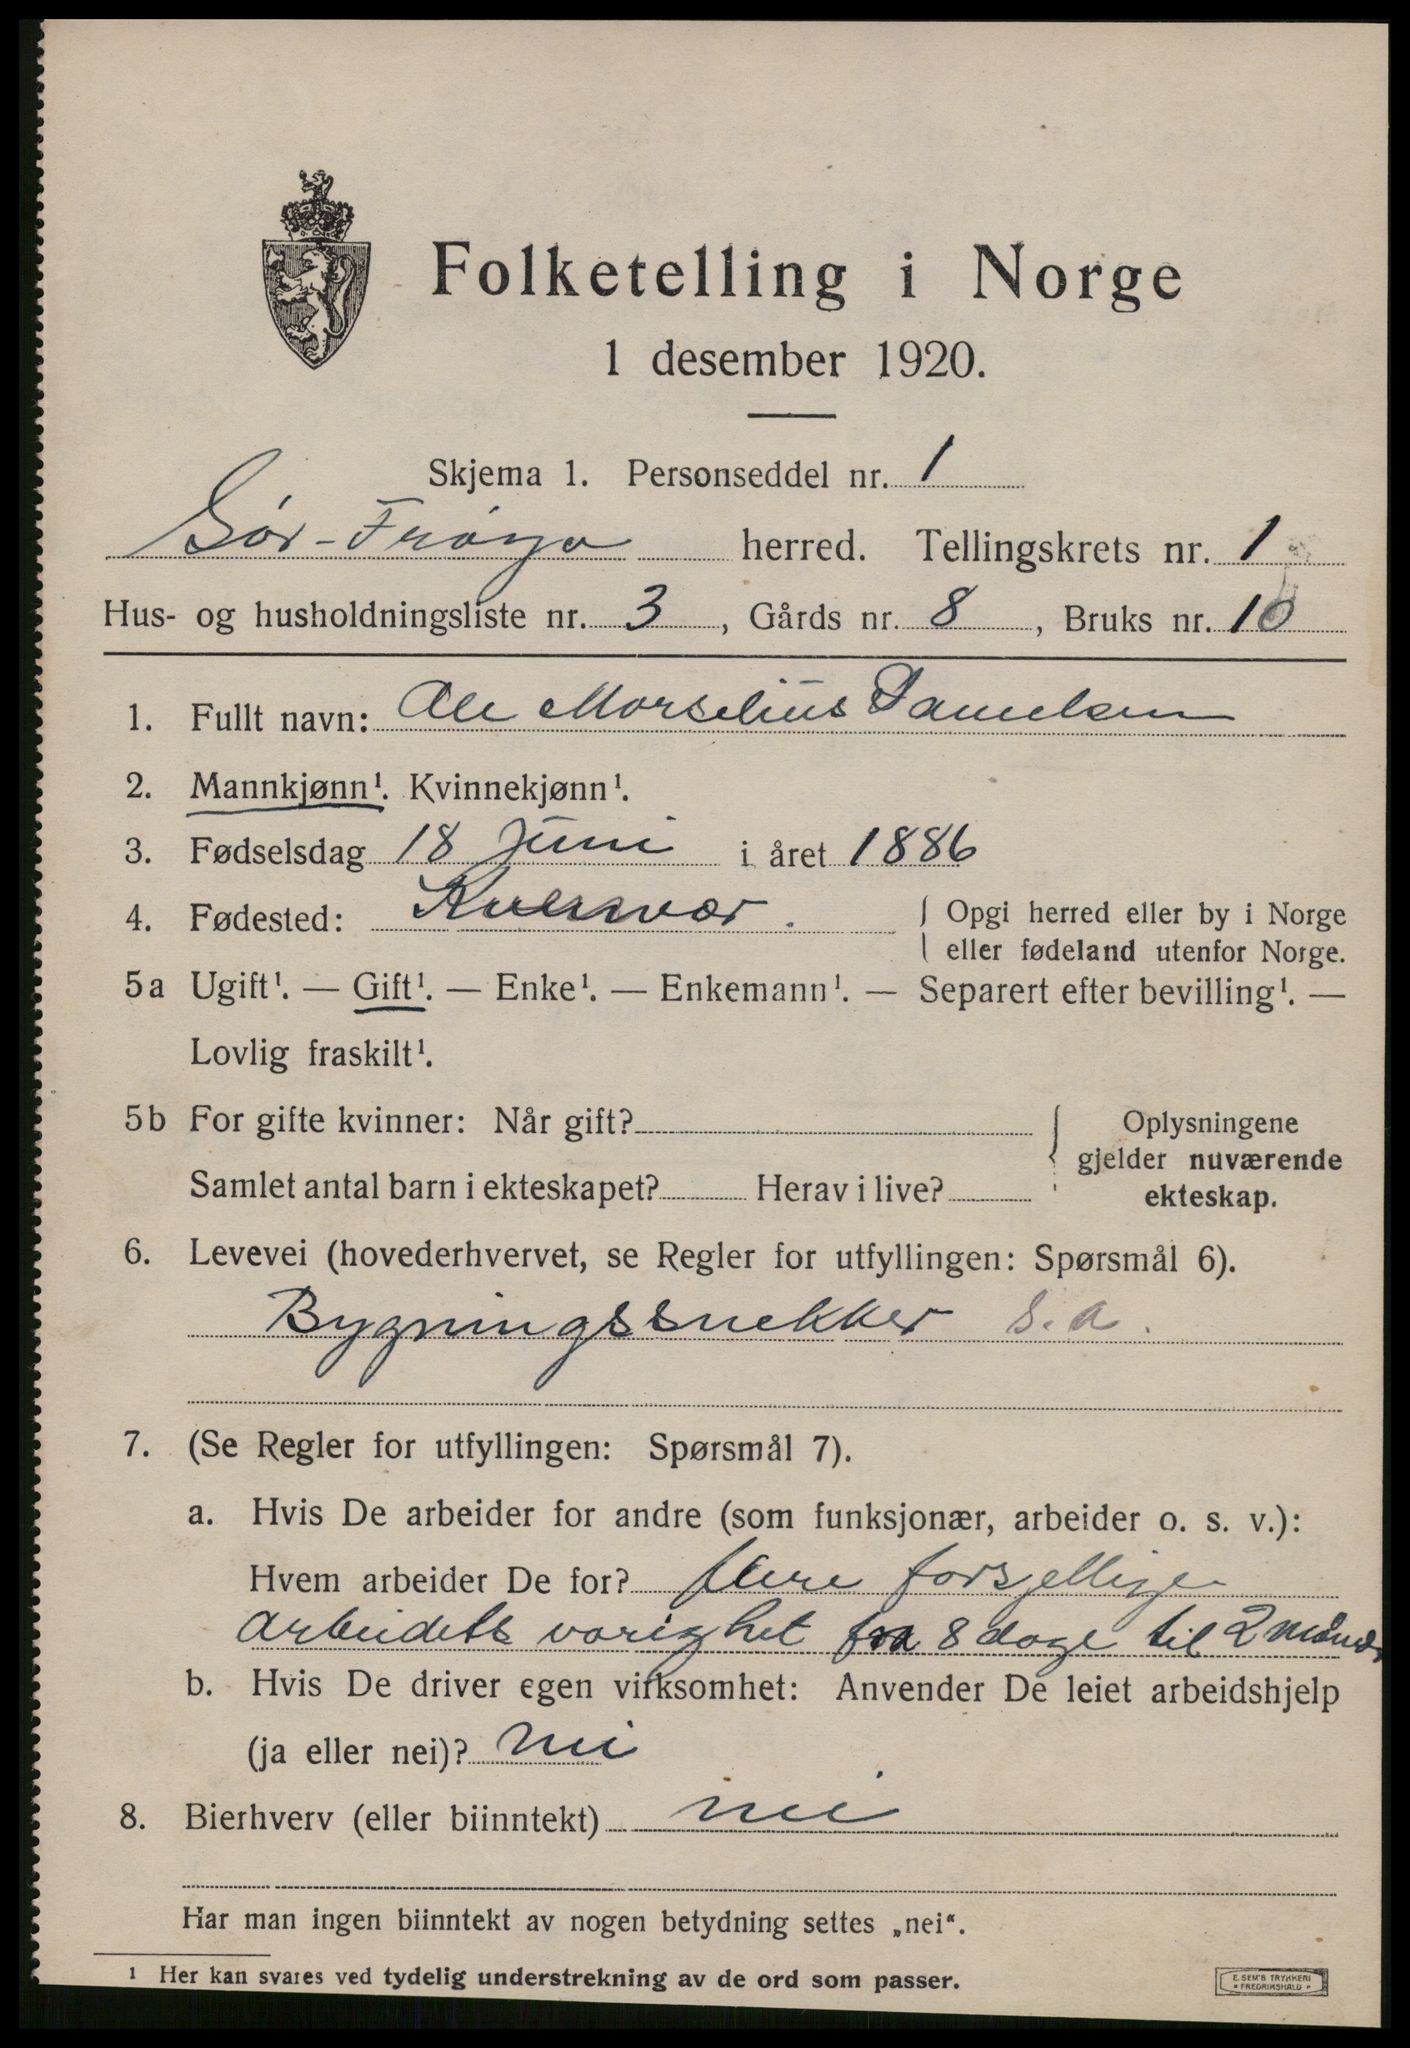 Folketelling i Norge
1 desember 1920.
Skjema 1. Personseddel nr. 1
Sør-Frøya herred. Tellingskrets nr. 1
Hus- og husholdningsliste nr. 3, Gårds nr. 8, Bruks nr. 10
1. Fullt navn: Ole Morselius
2. Mannkjønn¹. Kvinnekjønn¹.
3. Fødselsdag 18 Juni i året 1886
4. Fødested: { Opgi herred eller by i Norge
eller fødeland utenfor Norge.
5a Ugift¹. — Gift¹. — Enke¹. — Enkemann¹. — Separert efter bevilling¹. —
Lovlig fraskilt¹.
5b For gifte kvinner: Når gift?
Samlet antal barn i ekteskapet? Herav i live?
{ Oplysningene
gjelder nuværende
ekteskap.
6. Levevei (hovederhvervet, se Regler for utfyllingen: Spørsmål 6).
Bygningssnekker s.a.
7. (Se Regler for utfyllingen: Spørsmål 7).
a. Hvis De arbeider for andre (som funksjonær, arbeider o. s. v.):
Hvem arbeider De for? flere forsjellige
arbeidets varighet fra 8 dage til 2 måneder
b. Hvis De driver egen virksomhet: Anvender De leiet arbeidshjelp
(ja eller nei)? nei
8. Bierhverv (eller biinntekt) nei
Har man ingen biinntekt av nogen betydning settes „nei“.
¹ Her kan svares ved tydelig understrekning av de ord som passer.
E. SEM'S TRYKKERI
* FREDRIKSHALD *